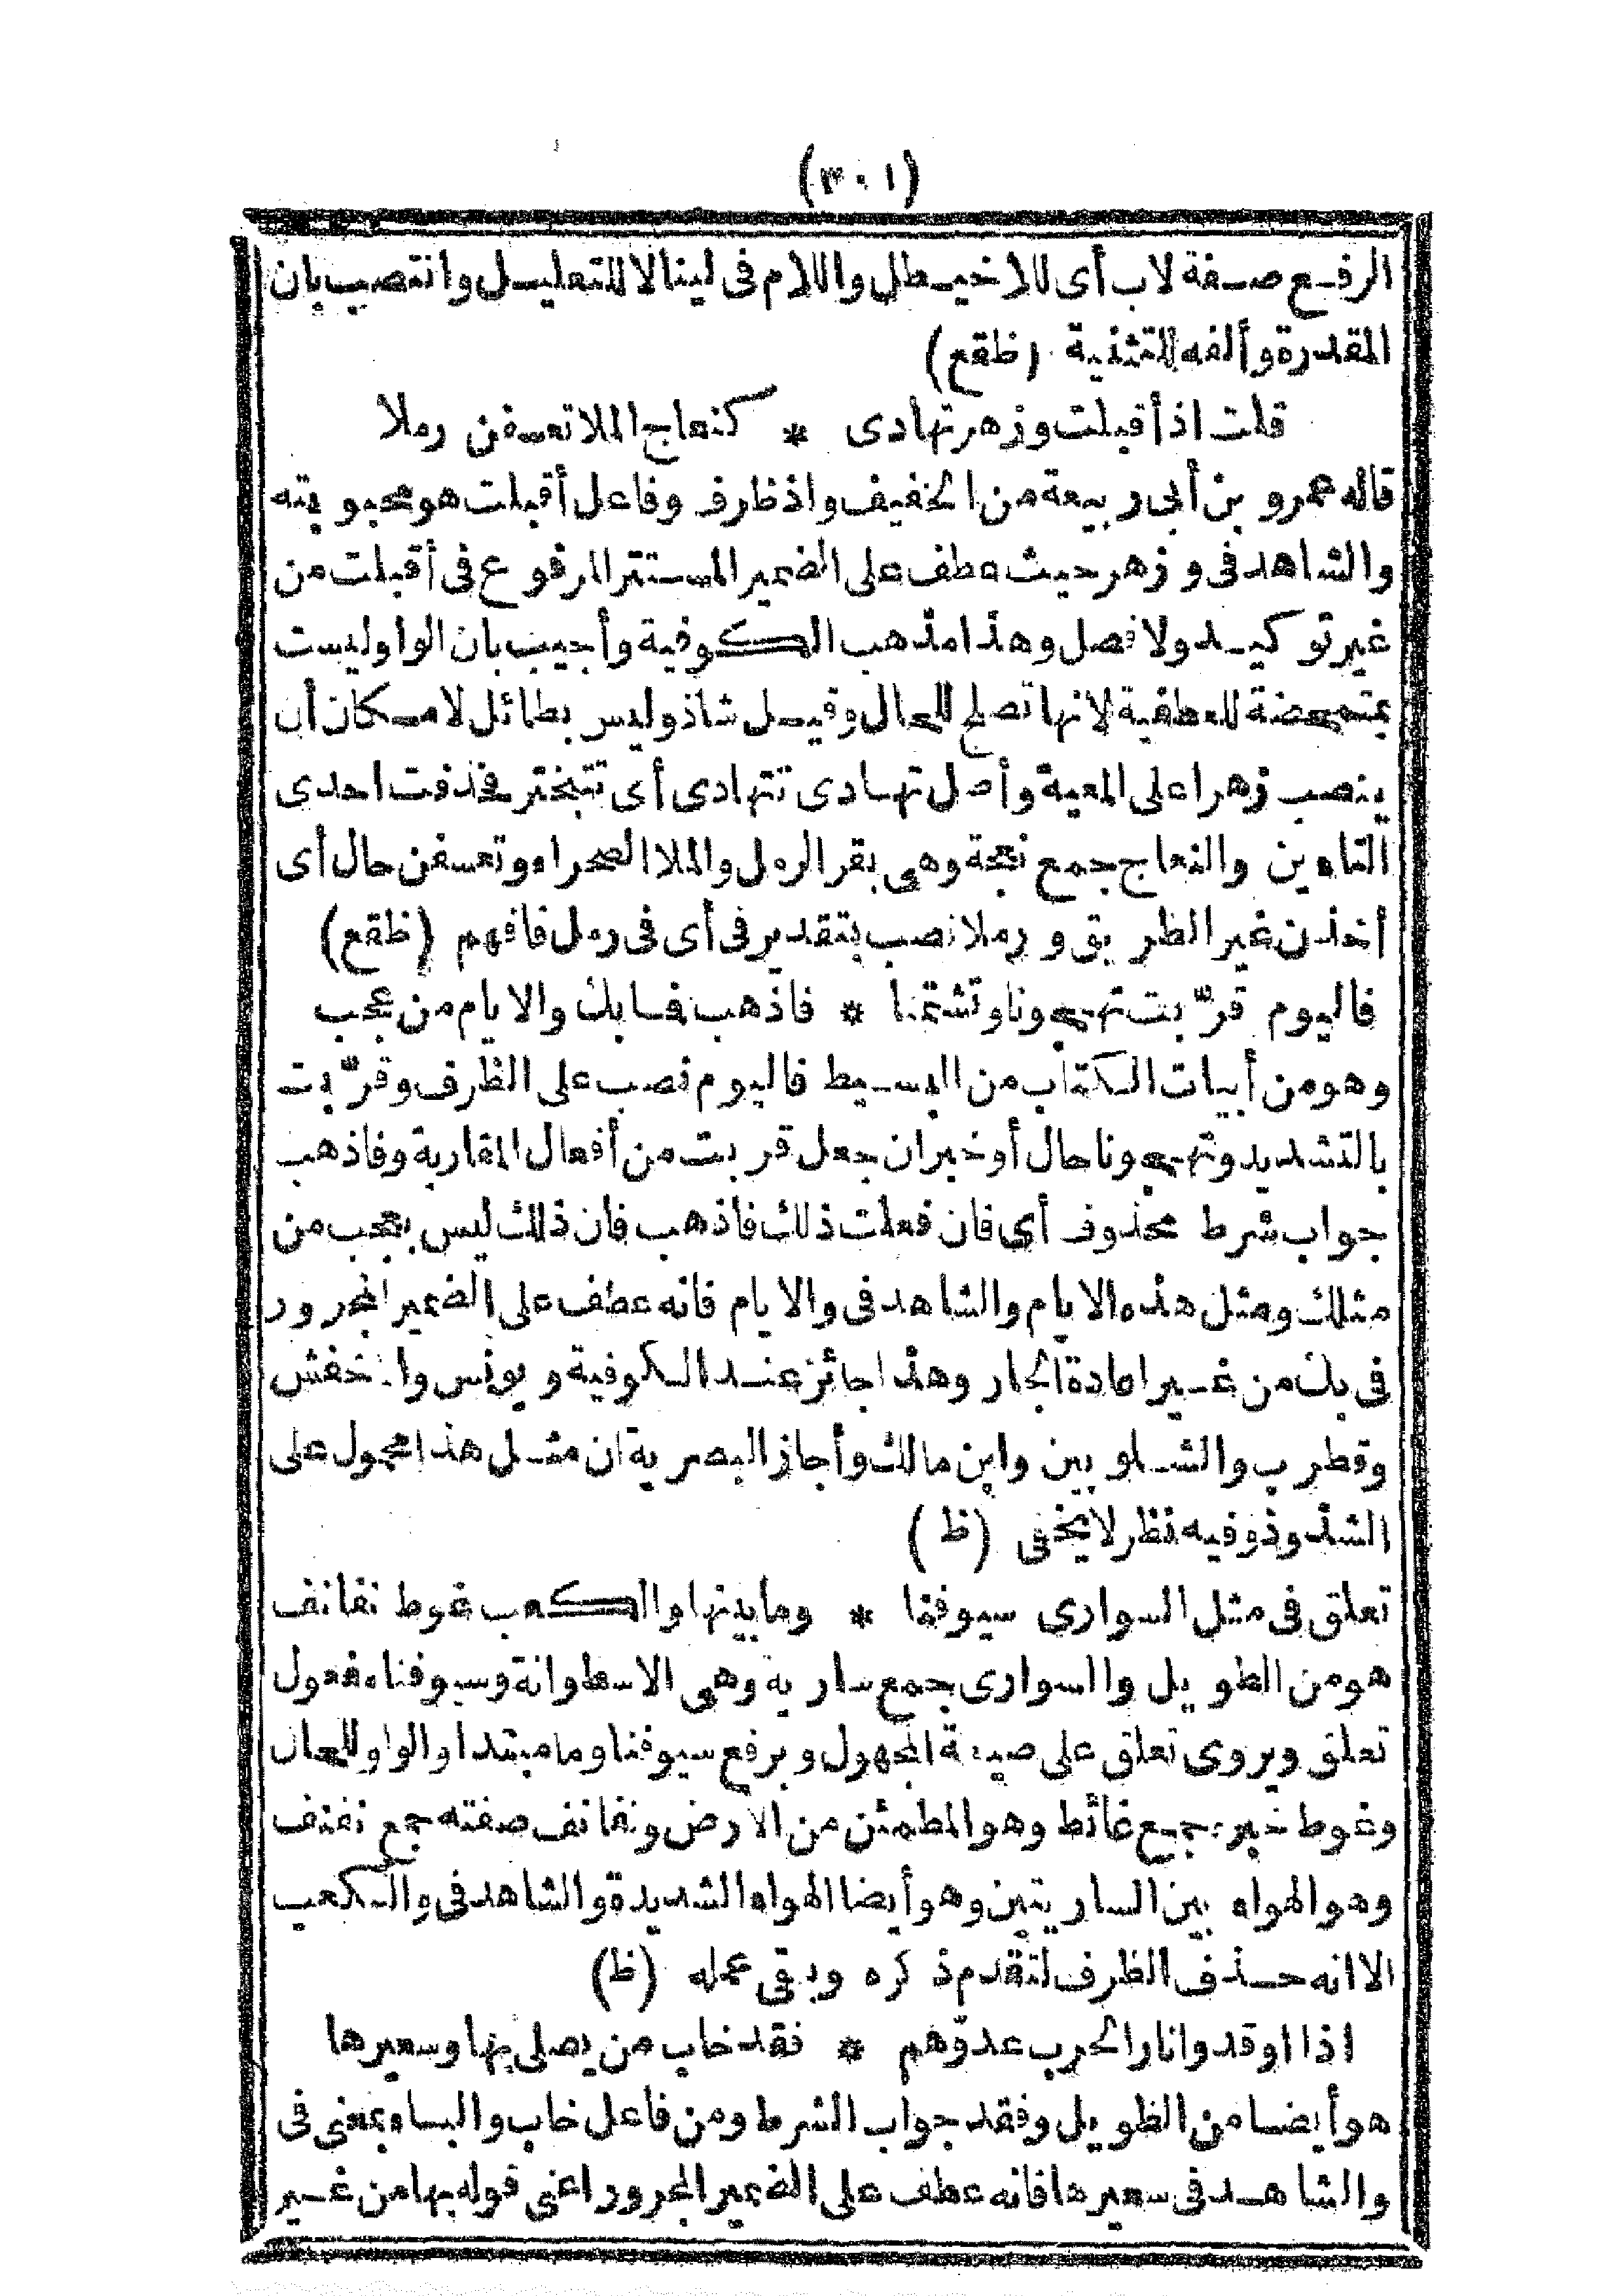 (٣٠١)
الرفع صفة لاب أى للاخيطل واللام فى لينالا للتعليل وانتصب بان
المقدرة وألفه للتثنية (ظقع)
قلت اذ أقبلت وزهر تهادى * كنعاج الملا تعسفن رملا
قاله عمرو بن أبى ربيعة من الخفيف واذ ظرف وفاعل أقبلت هو محبوبته
والشاهد فى وزهر حيث عطف على الضمير المستتر المرفوع فى أقبلت من
غير توكيد ولا فصل وهذا مذهب الكوفية وأجيب بان الواو ليست
بمتمحضة للعطفية لانها تصلح للحال وقيل شاذ وليس بطائل لامكان أن
ينصب زهرا على المعية وأصل تهادى تتهادى أى تتبختر فحذفت احدى
التاءين والنعاج جمع نعجة وهى بقر الرمل والملا الصحراء وتعسفن حال أى
أخذن غير الطريق ورملا نصب بتقدير فى أى فى رمل فافهم (ظقع)
فاليوم قرّبت تهجونا وتشتمنا * فاذهب فما بك والايام من عجب
وهو من أبيات الكتاب من البسيط فاليوم نصب على الظرف وقرّبت
بالتشديد وتهجونا حال أو خبر ان جعل قربت من أفعال المقاربة وفاذهب
جواب شرط محذوف أى فان فعلت ذلك فاذهب فان ذلك ليس بعجب من
مثلك ومثل هذه الايام والشاهد فى والايام فانه عطف على الضمير المجرور
فى بك من غير اعادة الجار وهذا جائز عند الكوفية ويونس والاخفش
وقطرب والشلوبين وابن مالك وأجاز البصرية ان مثل هذا محمول على
الشذوذ وفيه نظر لا يخفى (ظ)
تعلق فى مثل السوارى سيوفنا * وما بينها والكعب غوط نفانف
هو من الطويل والسوارى جمع سارية وهى الاسطوانة وسيوفنا مفعول
تعلق ويروى تعلق على صيغة المجهول وبرفع سيوفنا وما مبتدأ والواو للحال
وغوط خبره جمع غائط وهو المطمئن من الارض ونفانف صفته جمع نفنف
وهو الهواء بين الساريتين وهو أيضا الهواء الشديدة والشاهد فى والكعب
الا انه حذف الظرف لتقدم ذكره وبقى عمله (ظ)
اذا اوقدوا نار الحرب عدوّهم * فقد خاب من يصلى بها وسعيرها
هو أيضا من الطويل وفقد جواب الشرط ومن فاعل خاب والباء بمعنى فى
والشاهد فى سعيرها فانه عطف على الضمير المجرور اعنى قوله بها من غير